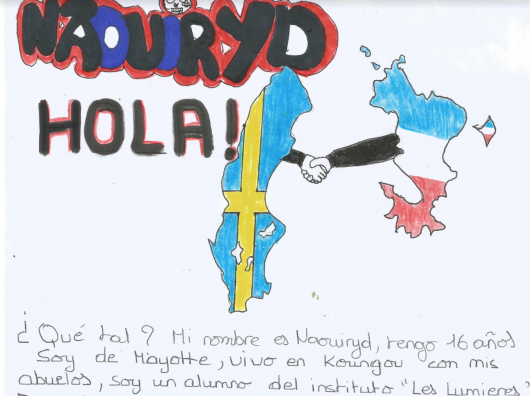 NAOUIRYD
HOLA!
¿ Qué tal ? Mi nombre es Naouiryd, tengo 16 años
Soy de Mayotte, vivo en Koungou con mis
abuelos, soy un alumno del instituto "Les Lumieres"